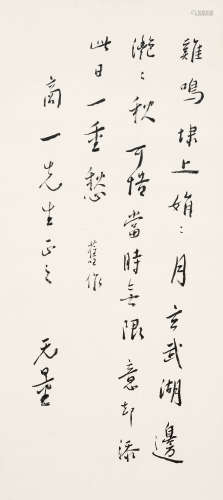 雞鳴埭上娟〻月玄武湖邊
灔〻秋可惜當時無限意却添
此日一重愁 舊作
商一先生正之
无量